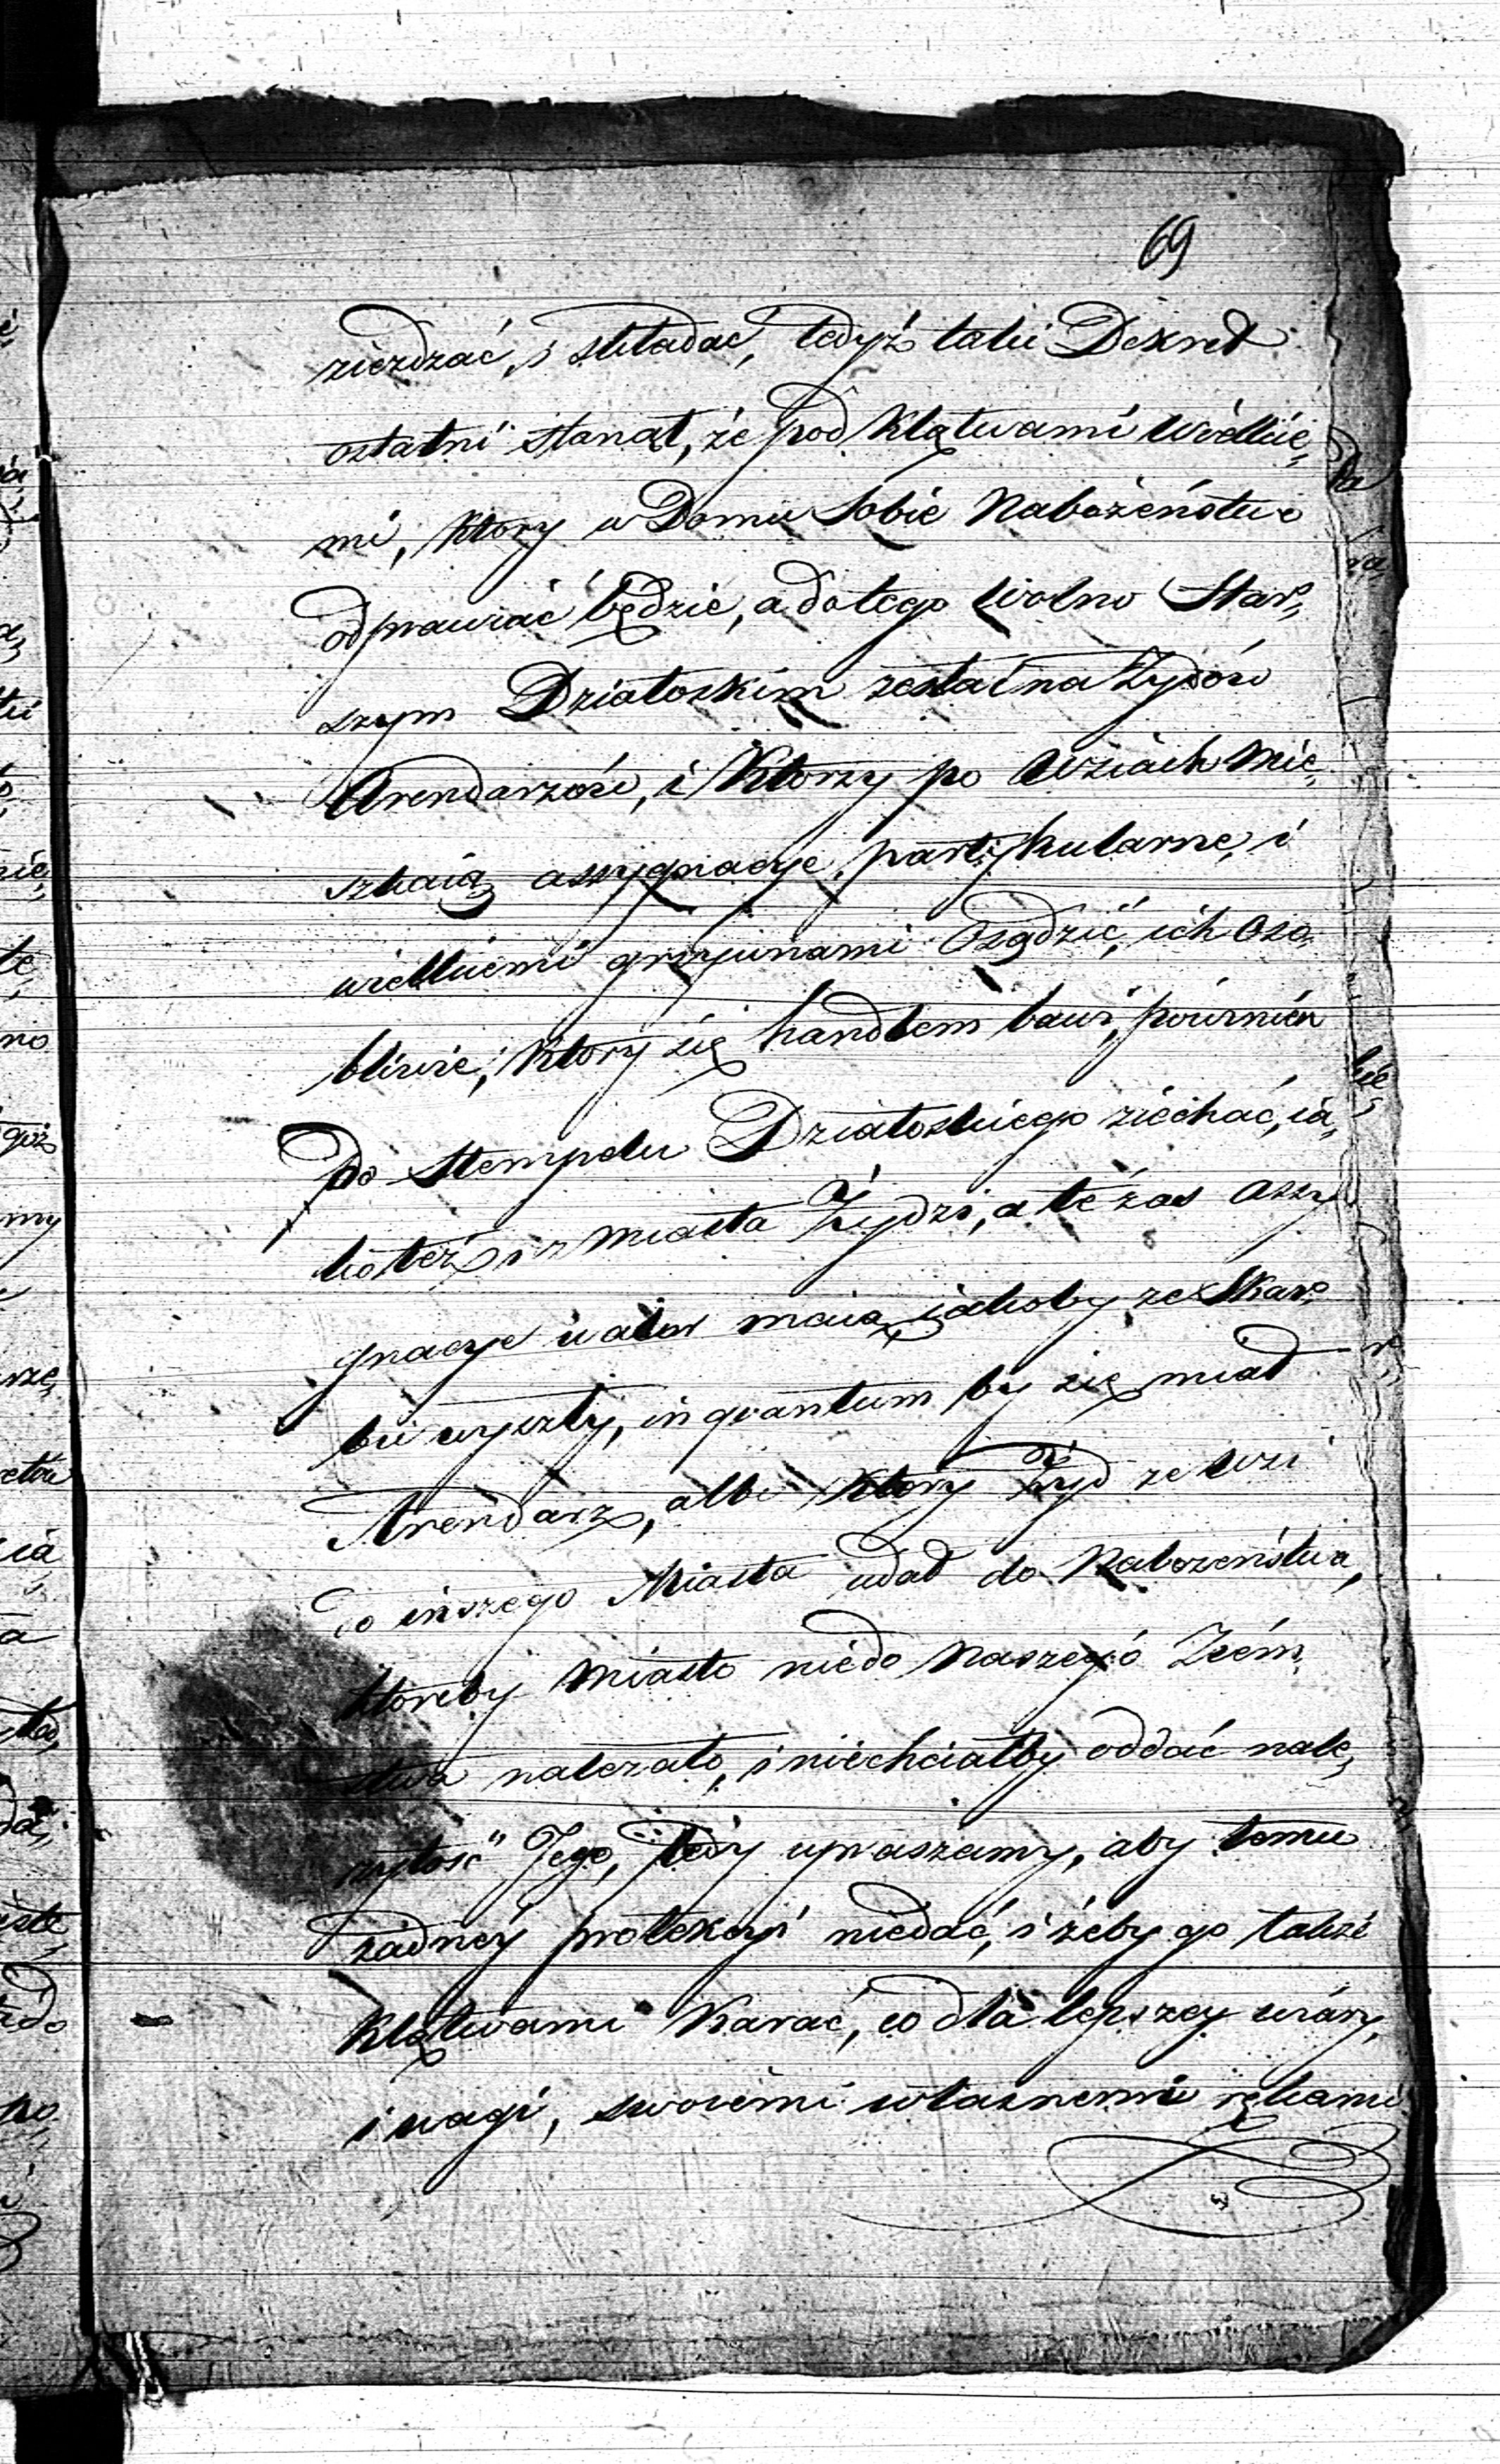 69
ziezdzać, i składać, tedyż taki Dekret
ostatni stanął, że pod Klątwami wielkie„
mi, który w Domu sobie Nabożeństwo
odprawiać będzie, a do tego wolno Star„
szym Działoskim zesłać na Żydów
Arendarzów, i Którzy po Wsiach mie„
szkaią assygnacye partykularne, i
wielkiemi grzywnami Osądzić, ich oso„
bliwie, Który się handlem bawi, powinien
do stempelu Działoskiego ziechać, ia„
ko też i z miasta Żydzi, a te zas assy
gnacye walor maią iakoby ze Skar„
bu wyszły, in quantum by się miał
Arendarz, albo Który Żyd ze wsi
do inszego Miasta udał do Nabozeństwa,
ktoreby miasto nie do Naszego Ziem„
stwa nalezało, i niechciałby oddać nale„
zytość Jego, tedy upraszamy, aby temu
żadney protekcyi niedać, i żeby go także
Klątwami Karać, co dla lepszey wiary,
i wagi, swoiemi własnemi rękami